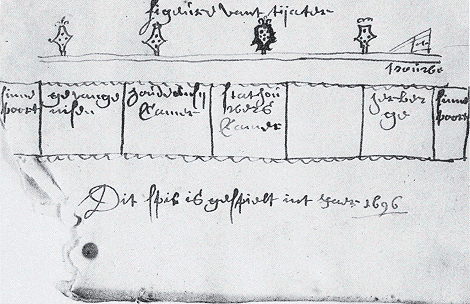 figeure vant tijater
poort
gevange
nisen
Camer
stathou
ders
Camer
herber
ge
poort
Dit spil is gespielt int Jaer 1696